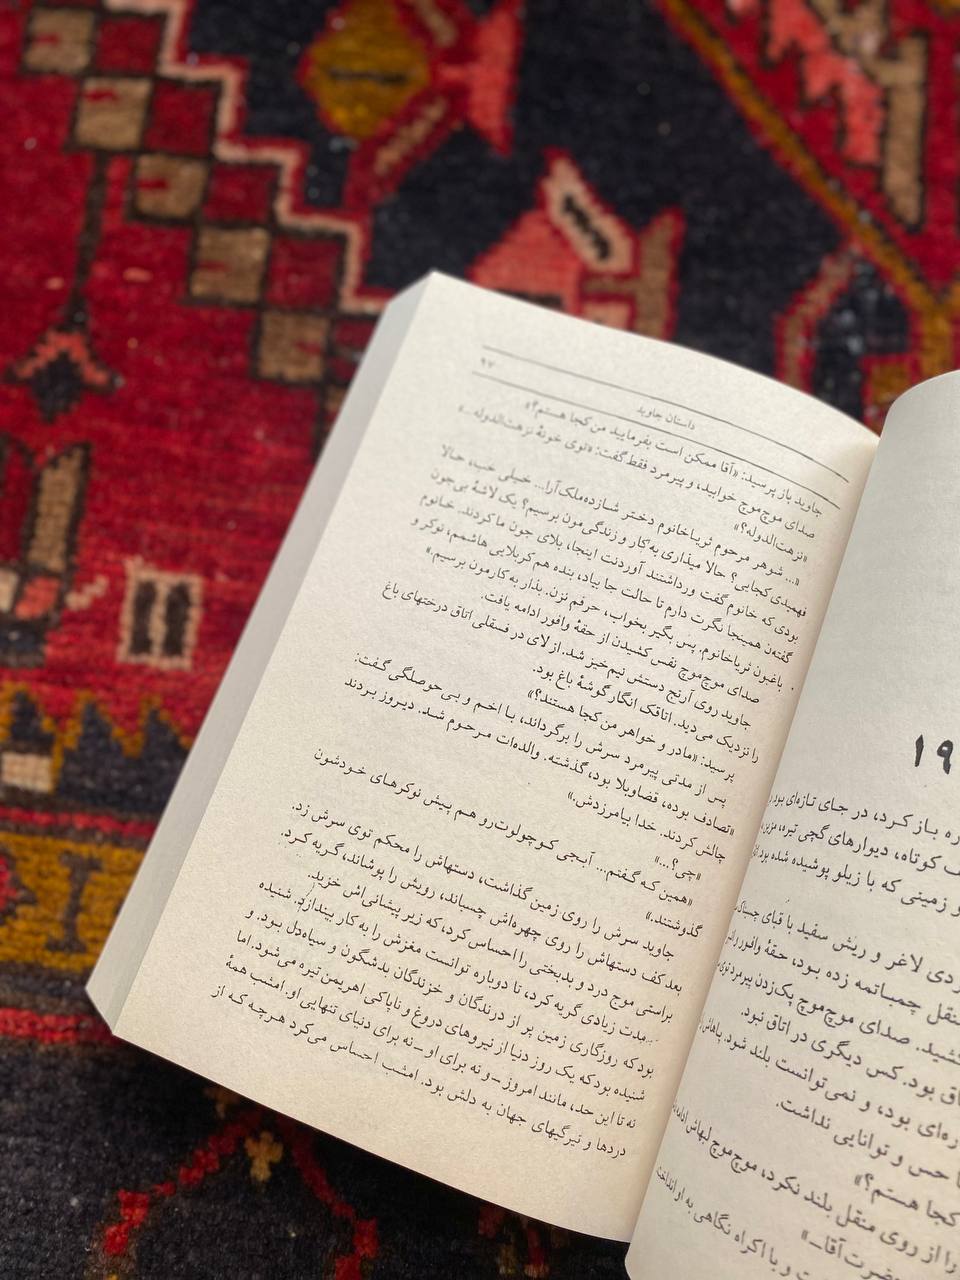 ۱۹
ره باز کرد، در جای تازه‌ای بود
ف کوتاه، دیوارهای گچی تیره،
و زمینی که با زیلو پوشیده شده بود
ردی لاغر و ریش سفید با قبای
منقل چمباتمه زده بود، حقهٔ وافور
کشید. صدای موچ‌موچ پک‌زدن پیرمرد
اق بود. کس دیگری در اتاق نبود.
ره‌ای بود، و نمی‌توانست بلند شود. پاهاش
حس و توانایی نداشت.
کجا هستم؟»
را از روی منقل بلند نکرد، موچ‌موچ لبهاش
ضرت آقا—»
ت و با اکراه نگاهی به او انداخت
داستان جاوید
۹۷
جاوید باز پرسید: «آقا ممکن است بفرمایید من کجا هستم؟»
صدای موچ‌موچ خوابید، و پیرمرد فقط گفت: «توی خونهٔ نزهت‌الدوله—»
«نزهت‌الدوله؟»
«... شوهر مرحوم ثریاخانوم دختر شازده‌ملک‌آرا... خیلی خب، حالا
فهمیدی کجایی؟ حالا میذاری به کار و زندگی‌مون برسیم؟ یک لاشهٔ بی‌جون
بودی که خانوم گفت ورداشتند آوردنت اینجا، بلای جون ما کردند. خانوم
گفته‌ن همینجا نگرت دارم تا حالت جا بیاد، بنده هم کربلایی هاشمم، نوکر و
باغبون ثریاخانوم. پس بگیر بخواب، حرفم نزن. بذار به کارمون برسیم.»
صدای موچ‌موچ نفس کشیدن از حقهٔ وافور ادامه یافت.
جاوید روی آرنج دستش نیم‌خیز شد. از لای در فسقلی اتاق درختهای باغ
را نزدیک می‌دید. اتاقک انگار گوشهٔ باغ بود.
پرسید: «مادر و خواهر من کجا هستند؟»
پس از مدتی پیرمرد سرش را برگرداند، با اخم و بی‌حوصلگی گفت:
«تصادف بوده، قضاوبلا بود، گذشته. والده‌ات مرحوم شد. دیروز بردند
چالش کردند. خدا بیامرزدش.»
«چی؟...»
«همین که گفتم... آبجی کوچولوت‌رو هم پیش نوکرهای خودشون
گذوشتند.»
جاوید سرش را روی زمین گذاشت، دستهاش را محکم توی سرش زد.
بعد کف دستهاش را روی چهره‌اش چسباند، رویش را پوشاند، گریه کرد.
براستی موج درد و بدبختی را احساس کرد، که زیر پیشانی‌اش خزید.
مدت زیادی گریه کرد، تا دوباره توانست مغزش را به کار بیندازد. شنیده
بود که روزگاری زمین پر از درندگان و خزندگان بدشگون و سیاه‌دل بود. و
شنیده بود که یک روز دنیا از نیروهای دروغ و ناپاکی اهریمن تیره می‌شود. اما
نه تا این حد، مانند امروز — و نه برای او — نه برای دنیای تنهایی او. امشب همهٔ
دردها و تیرگیهای جهان به دلش بود. امشب احساس می‌کرد هرچه که از